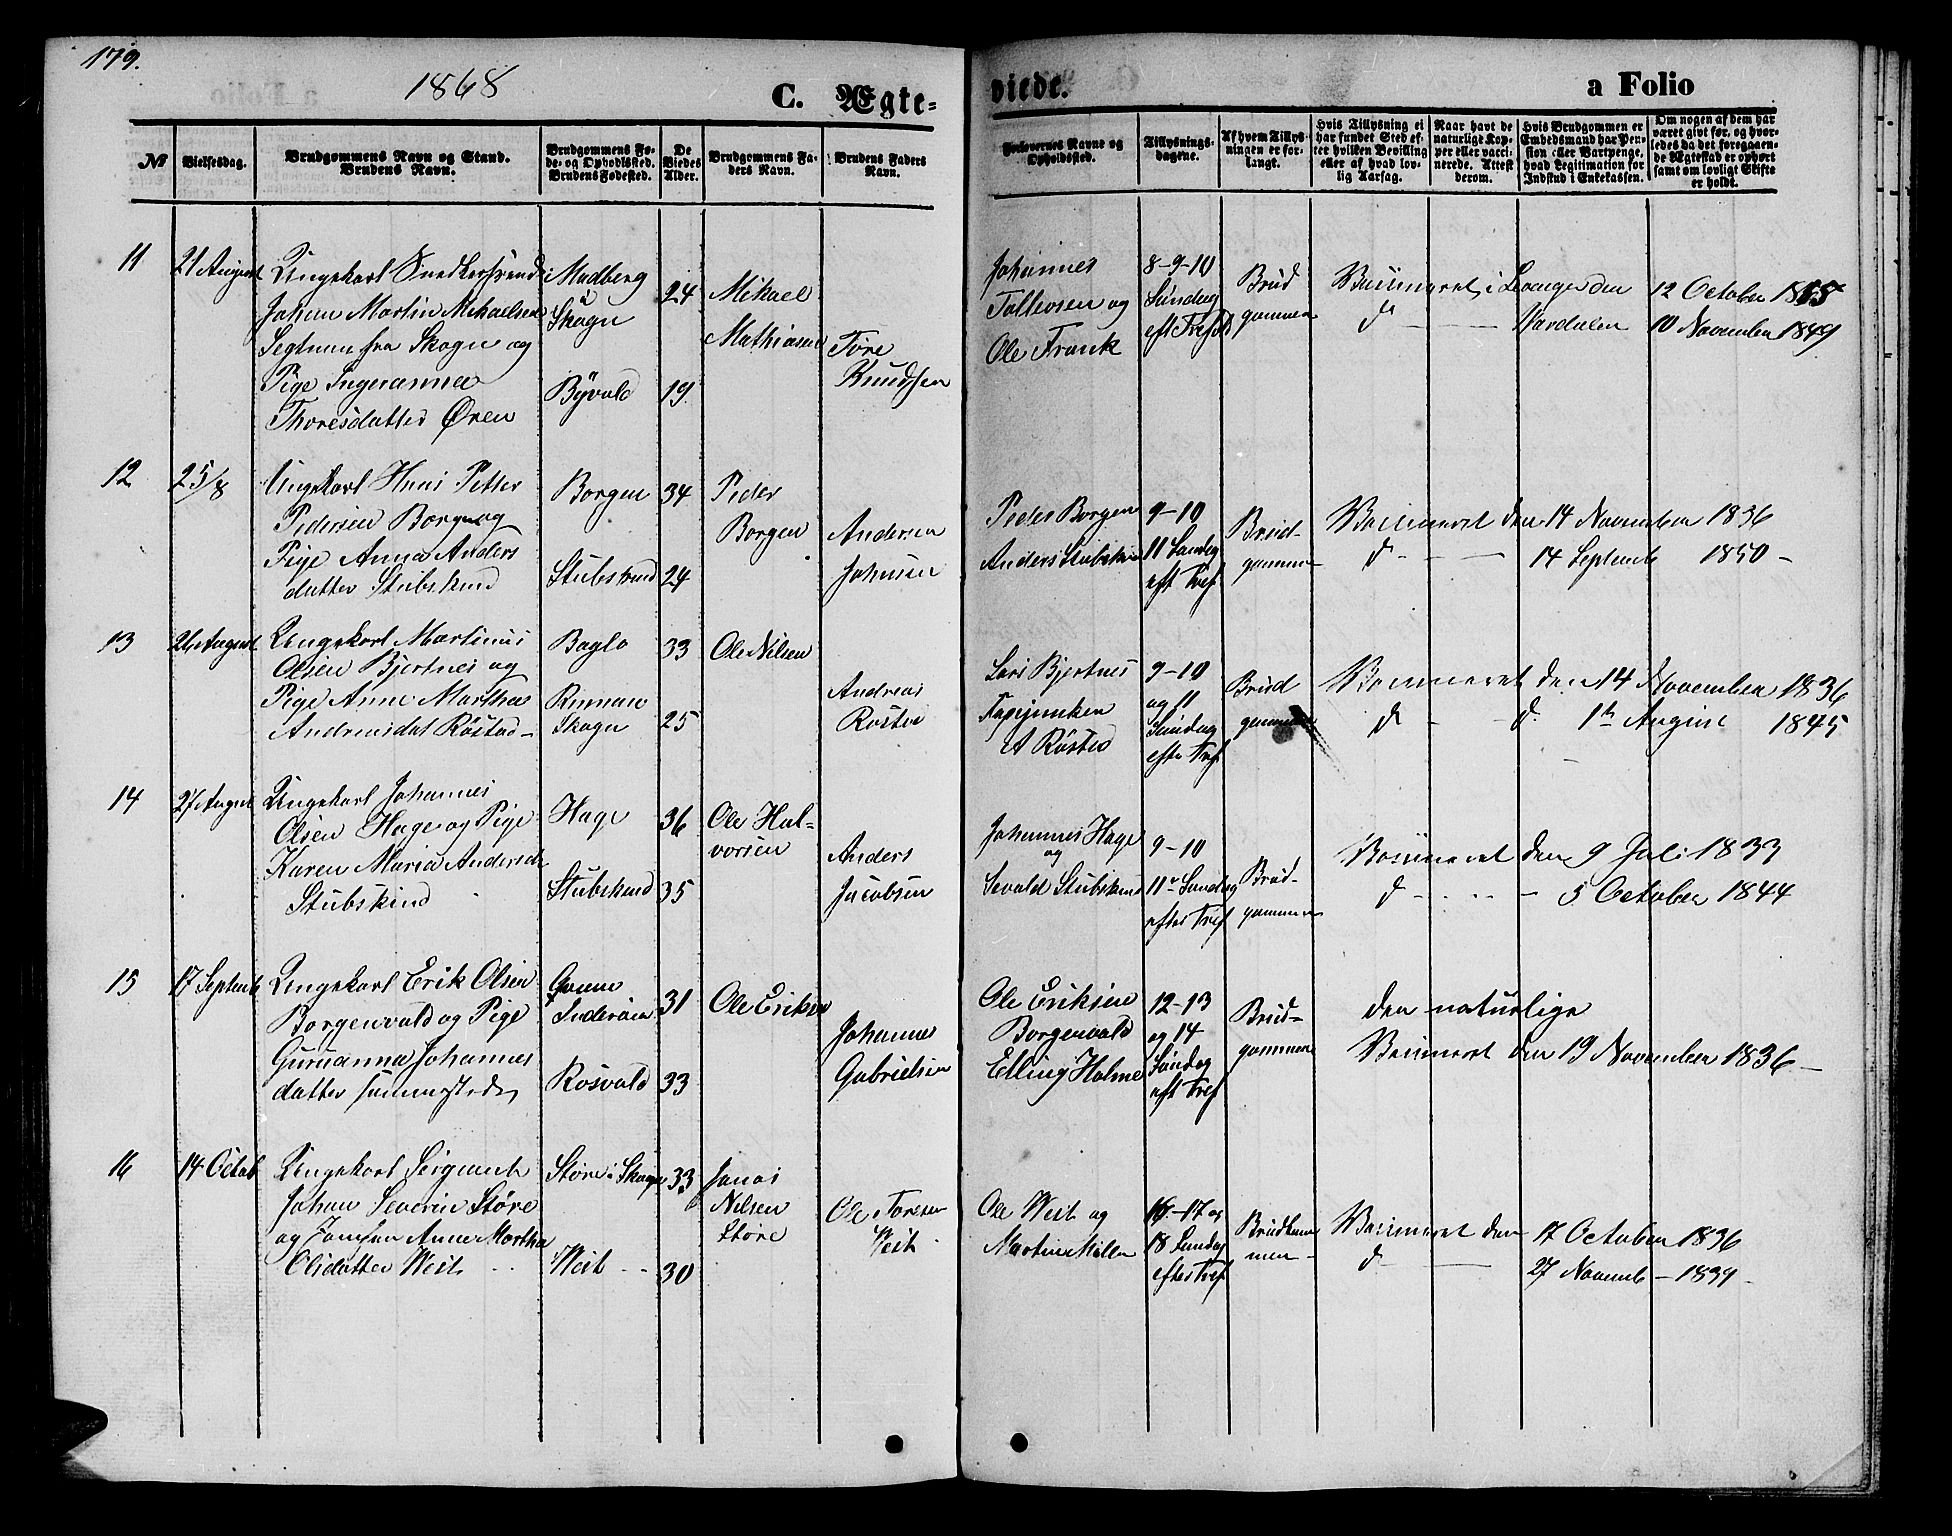 179.
1868
C. Ægte-
viede.
a Folio
No
Vielsesdag.
Brudgommens Navn og Stand.
Brudens Navn.
Brudgommens Fø-
de- og Opholdssted.
Brudens Fødested.
De
Viedes
Alder.
Brudgommens Fa-
ders Navn.
Brudens Faders
Navn.
Forlovernes Navne og
Opholdssted.
Tillysnings-
dagene.
Af hvem Tillys-
ningen er for-
langt.
Hvis Tillysning ei
har fundet Sted ef-
ter hvilken Bevilling
eller af hvad lov-
lig Aarsag.
Naar havt de
naturlige Kop-
per eller vacci-
nerede. Attest
derom.
Hvis Brudgommen er
Embedsmand har Pen-
sion eller Vartpenge,
hvad Legitimation for
Indskud i Enkekassen.
Om nogen af dem har
været givt før, og hvor-
ledes da det foregaaen-
de Ægteskab er ophørt
samt om lovligt Skifte
er holdt.
11
21 August
Ungekarl Snedkersvend
Johan Martin Mikaelsen
Segtnan fra Skogn og
Pige Ingeranna
Thoresdatter Øren
Madberg
i
Skogn
Byvald
24
19
Mikael
Mathiasen
Tøre
Knudsen
Johannes
Tollevsen og
Ole Frank
8-9-10
Søndag
eft Trefol
Brud
gommen
Vaccineret i Levanger den 12 October 1865
do Værdalen 10 November 1849
12
25/8
Ungekarl Hans Petter
Pedersen Borgen og
Pige Anna Anders
datter Stubskind
Borgen
Stubskind
34
24
Peder
Borgen
Andersen
Johnsen
Peder Borgen
Anders Stubskin
9-10
11 Søndag
eft Tref
Brud-
gommen
Vaccineret den 14 November 1836
do 14 Septemb 1850 -
13
26 August
Ungekarl Martinus
Olsen Bjertnes og
Pige Anne Martha
Andreasdat Røstad
Baglo
Rinnan
Skogn
33
25
Ole Nilsen
Andreas
Røstad
Lars Bjertnes
A Røstad
9-10
og 11
Søndag
efter Tref
Brud
gommen
Vaccineret den 14 November 1836
do - d. 1te August 1845
14
27 August
Ungekarl Johannes
Olsen Hage og Pige
Karen Maria Andersd
Stubskind
Hage
Stubskind
36
35
Ole Hal-
vorsen
Anders
Jacobsen
Johannes Hage
og
Sevald Stubskind
9-10
11te Søndag
efter Tref
Brud-
gommen
Vaccineret den 9 Juli 1833
do - 5 October 1844
15
17 Septemb
Ungekarl Erik Olsen
Borgenvald og Pige
Guruanna Johannes
datter sammesteds
Inderøen
Rosvald
31
33
Ole Eriksen
Johannes
Gabrielsen
Ole Eriksen
Borgenvald
Elling Holme
12-13
og 14
Søndag
eft Tref
Brud-
gommen
den naturlige
Vaccineret den 19 November 1836 -
16
14 Octob
Ungekarl Sergeant
Johan Severin Støre
og Jomfru Anne Martha
Olsdatter West
Støre i Skogn
West
33
30
Jonas
Nilsen
Støre
Ole Toresen
West
Ole West og
Martin Møller
16-17 og
18 Søndag
efter Tref
Brudgom
men -
Vaccineret den 17 October 1836
do 27 Novemb - 1839 -